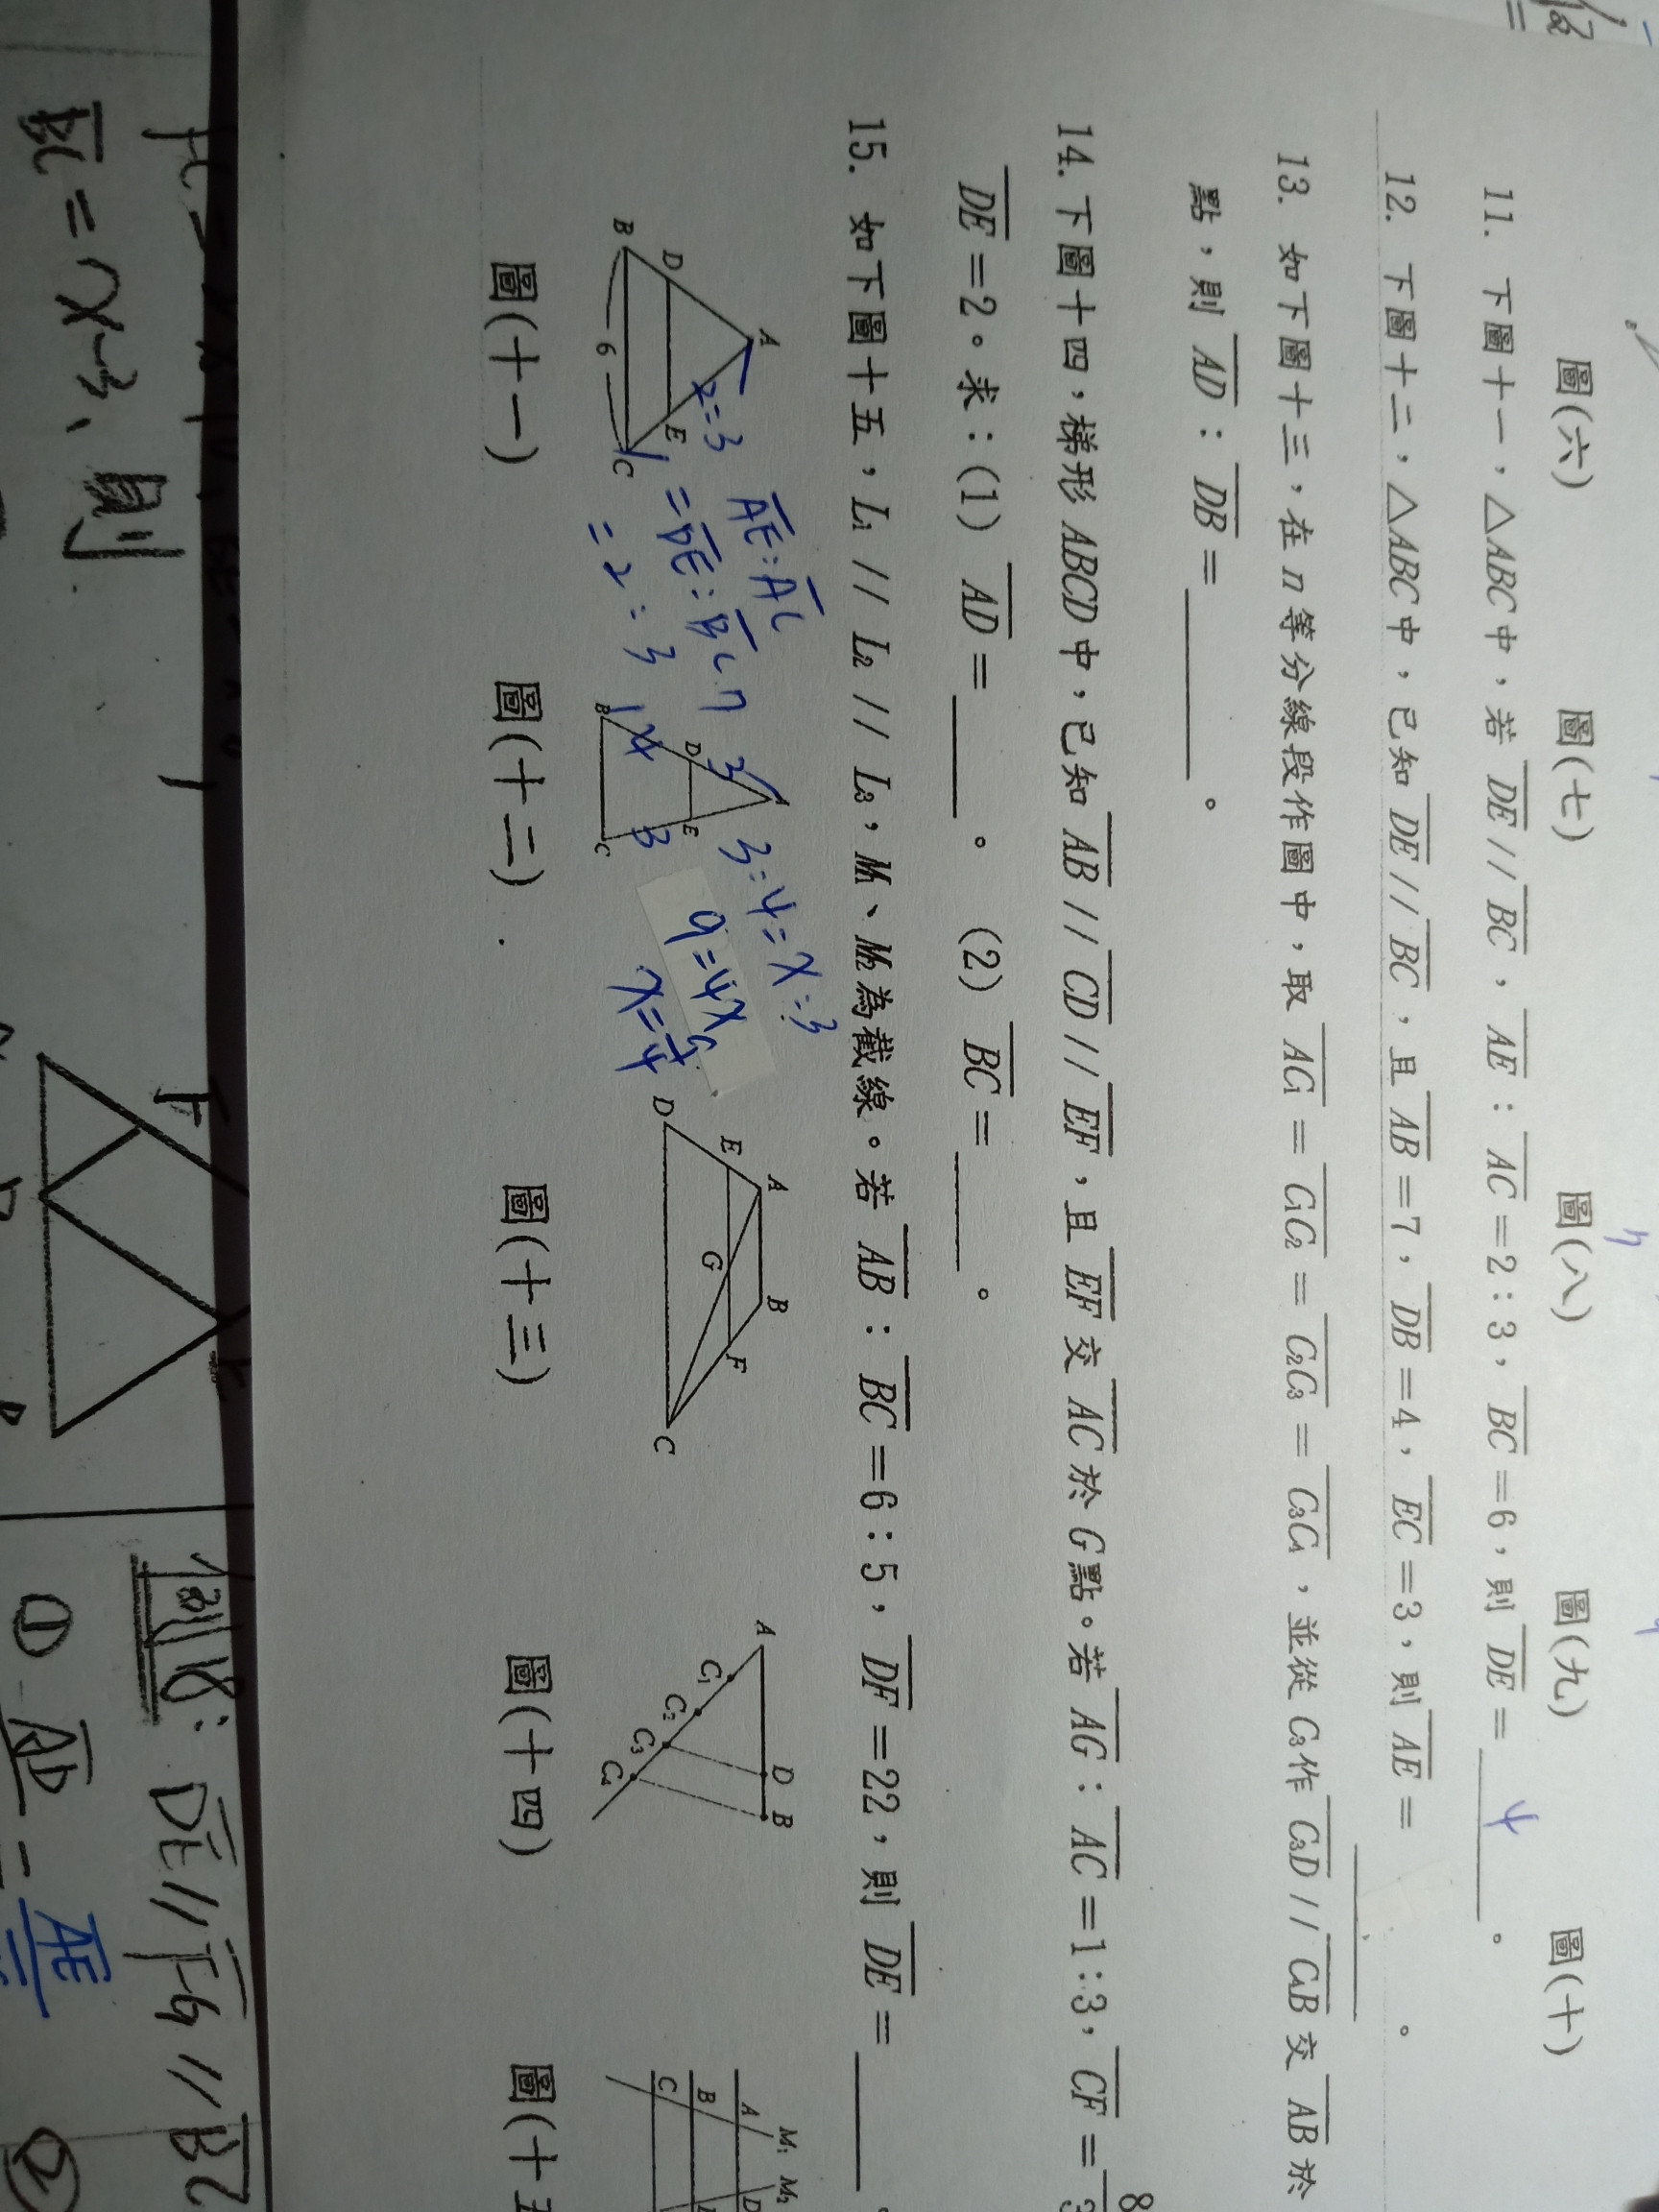 圖(六) 圖(七) 圖(八) 圖(九) 圖(十)
11. 下圖十一，△ABC中，若 DE // BC，AE：AC=2：3，BC=6，則 DE= 4 。
12. 下圖十二，△ABC中，已知 DE // BC，且 AB=7，DB=4，EC=3，則 AE= 。
13. 如下圖十三，在 n 等分線段作圖中，取 AC₁ = C₁C₂ = C₂C₃ = C₃C₄，並從 C₃作 C₃D // C₄B 交 AB 於
點，則 AD：DB= 。
14. 下圖十四，梯形 ABCD中，已知 AB // CD // EF，且 EF 交 AC 於 G點。若 AG：AC=1：3，CF= 8
DE=2。求：(1) AD= 。 (2) BC= 。
15. 如下圖十五，L₁ // L₂ // L₃，M₁、M₂為截線。若 AB：BC=6：5，DF=22，則 DE= 。
A
B
C
D
E
6
2=3
AE:AC
=DE:BC
=2:3
B
C
D
E
3
4
3
3:4=x:3
9=4x
D
E
A
B
G
F
C
A
C₁
C₂
C₃
C₄
D
B
M₁
M₂
A
B
C
D
圖(十一) 圖(十二) 圖(十三) 圖(十四) 圖(十五
例18: DE // FG // BC
① AD = AE
②
BC = x-3、則